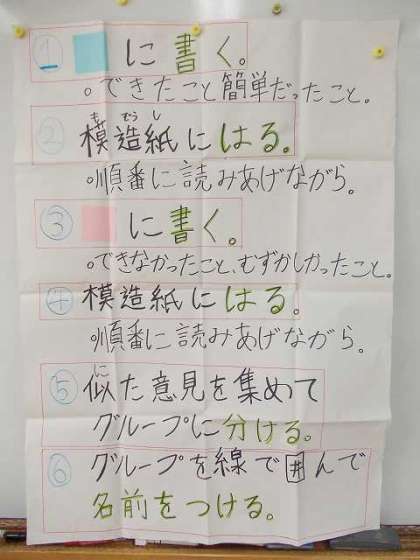 ① に書く。
○できたこと簡単だったこと。
② 模造紙にはる。
も ぞう し
○順番に読みあげながら。
③ に書く。
○できなかったこと、むずかしかったこと。
④ 模造紙にはる。
○順番に読みあげながら。
⑤ 似た意見を集めて
に
グループに分ける。
⑥ グループを線で囲んで
名前をつける。